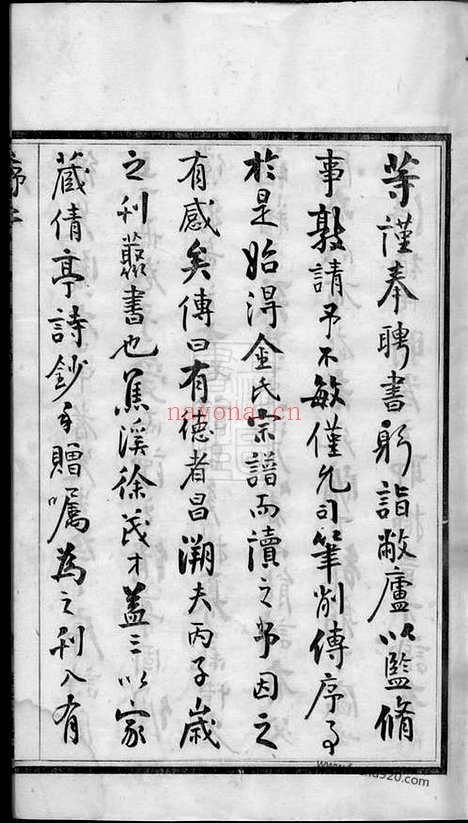 等謹奉聘書躬詣敝廬以監脩
事敦請予不敏僅允司筆削傳序了
於是始淂金氏宗譜而讀之予因之
有感矣傳曰有德者昌溯夫丙子歲
之刊叢書也蕉溪徐氏才蓋三以家
藏倩亭詩鈔見贈囑為之刊入有
nayona.cn